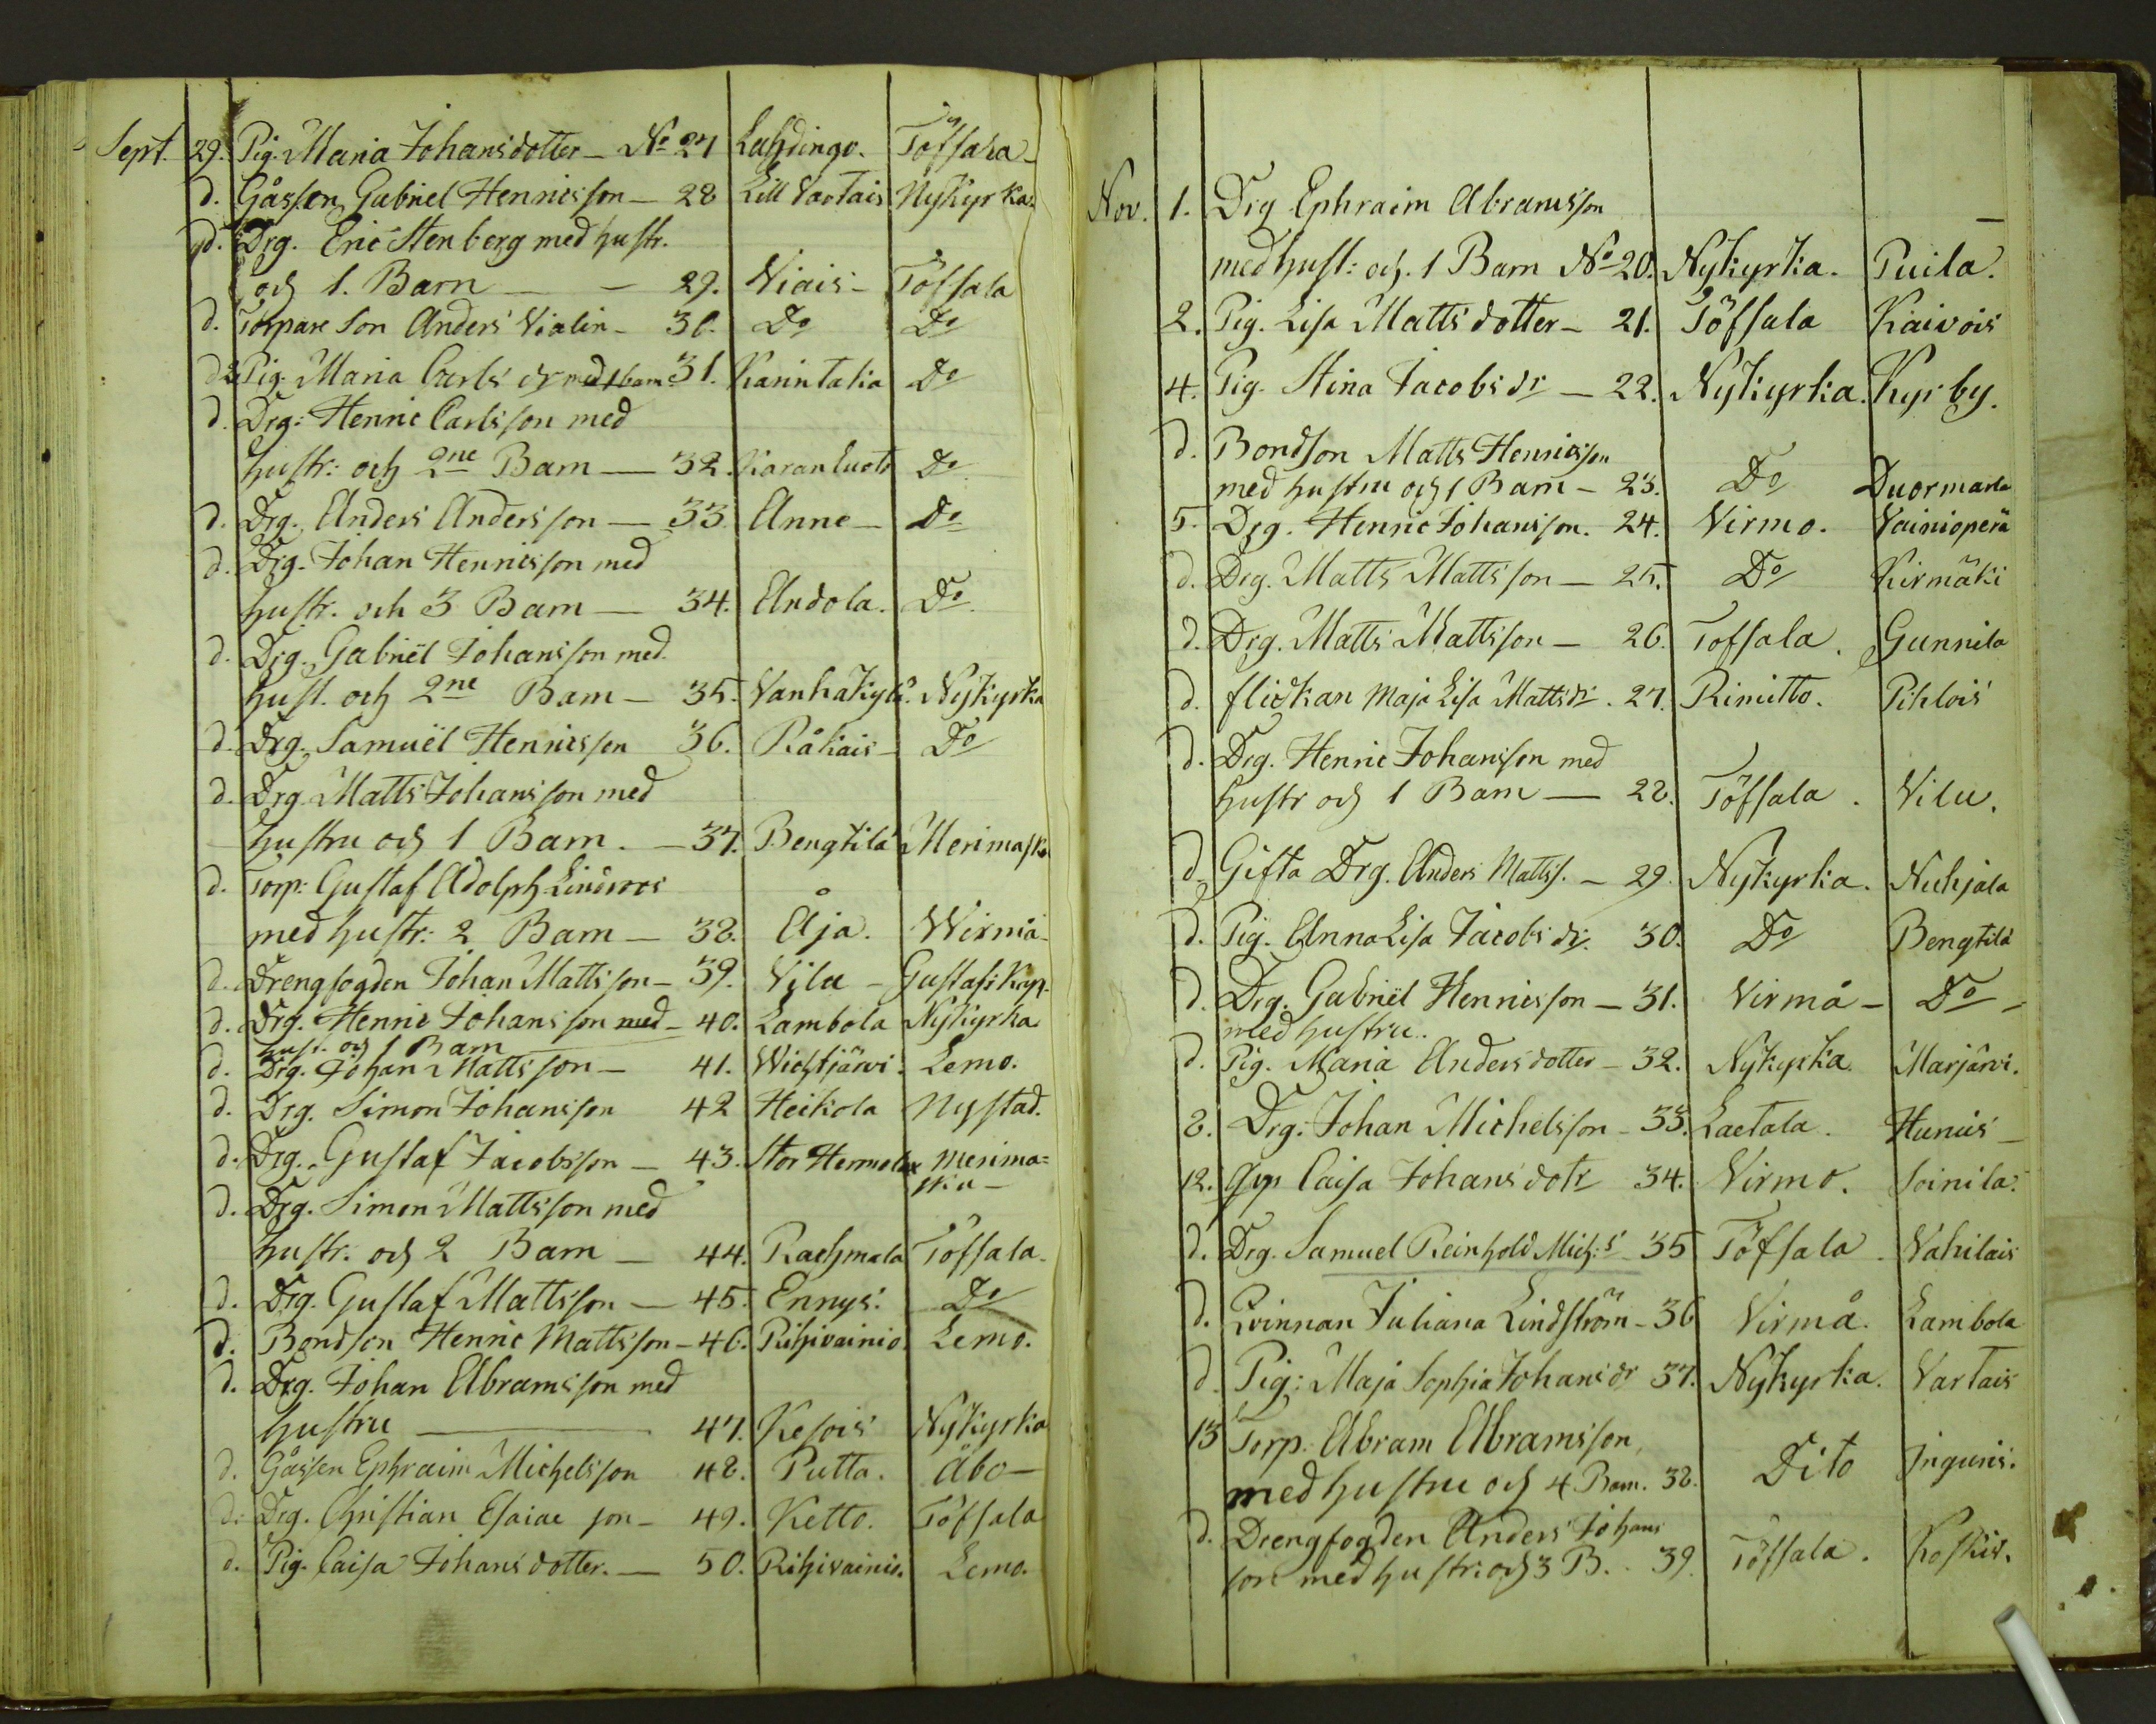 Sept. 29. Pig. Maria Johansdotter - No 27 Lahdingo. Töfsala
d. Gåssen Gabriel Henricsson - 28 Lill Vartais Nykyrka.
d. Drg. Eric Stenberg med hustr.
och 1. Barn - - 29. Viais - Töfsala
d. Torpare Son Anders Vialin - 30. Do Do
d. Pig. Maria Carls dr med 1 barn 31. Karintaka Do
d. Drg: Henric Carlsson med
hustr: och 2ne Barn - 32. Karanluoto Do
d. Drg. Anders Andersson - 33 Anne - Do
d. Drg. Johan Henricsson med
hustr. och 3 Barn - 34. Andola. Do
d. Drg. Gabriël Johansson med
hust. och 2ne Barn - 35. Vanhakylä. Nykyrka
d. Drg. Samuël Henricsson 36. Råkais - Do
d. Drg. Matts Johansson med
hustru och 1 Barn. - 37. Bengtilä Merimasku
d. Torp: Gustaf Adolph Lindroos
med hustr: 2 Barn - 38. Åja. Wirmå
d. Drengfogden Johan Mattsson - 39. Vilu - Gustafs Kap.
d. Drg. Henric Johansson med - 40. Lambola Nykyrka
hust. och 1 Barn
d. Drg. Johan Mattsson - 41. Wichtjärvi. Lemo.
d. Drg. Simon Johansson 42 Heikola Nystad.
d. Drg. Gustaf Jacobsson - 43. Stor Hermola Merima=
sku -
d. Drg. Simon Mattsson med
hustr: och 2 Barn - 44. Raehmala Töfsala.
d. Drg. Gustaf Mattsson - 45. Ennys. Do
d. Bondson Henric Mattsson - 46. Rihivainio. Lemo.
d. Drg. Johan Abramsson med
hustru - 47. Kesois Nykyrka
d. Gåssen Ephraim Michelsson 48. Putta. Åbo -
d. Drg. Christian Esaiae son - 49. Ketto. Töfsala
d. Pig. Caisa Johansdotter. - 50. Rihivainio. Lemo.
Nov. 1. Drg Ephraim Abramsson
med hust: och. 1 Barn No 20. Nykyrka. Puila.
2. Pig. Lisa Mattsdotter - 21. Töfsala Kaivois
4. Pig. Stina Jacobs dr - 22. Nykyrka. Kyrby.
d. Bondson Matts Henricsson
med hustru och 1 Barn - 23. Do Duormarla
5. Drg. Henric Johansson. 24. Virmo. Vainioperä
d. Drg. Matts Mattsson - 25. Do Kirmäki
d. Drg. Matts Mattsson - 26. Tofsala. Gunnila
d. flickan Maja Lisa Matts dr. 27. Rimitto. Pihlois
d. Drg. Henric Johansson med
hustr och 1 Barn - 28. Töfsala. Vilu.
d. Gifta Drg. Anders Mattss. - 29. Nykyrka. Nuhjala
d. Pig. Anna Lisa Jacobs dr. 30. Do Bengtilä
d. Drg. Gabriël Henricsson - 31. Virmå - Do -
med hustru..
d. Pig. Maria Andersdotter - 32. Nykyrka. Marjärvi.
8. Drg: Johan Michelsson - 33. Laetala. Hunus -
12. Pig Caisa Johans dotr 34. Virmo. Soinila.
d. Drg. Samuel Reinhold Mich: s 35 Töfsala. Vahilais
d. Qvinnan Juliana Lindström - 36 Virmå. Lambola
d. Pig: Maja Sophia Johans dr 37. Nykyrka. Vartais
13 Torp. Abram Abramsson
med hustru och 4 Barn. 38. Dito Ingunis.
d. Drengfogden Anders Johans
son med hustr: och 3 B. . 39. Töfsala. Koskis.